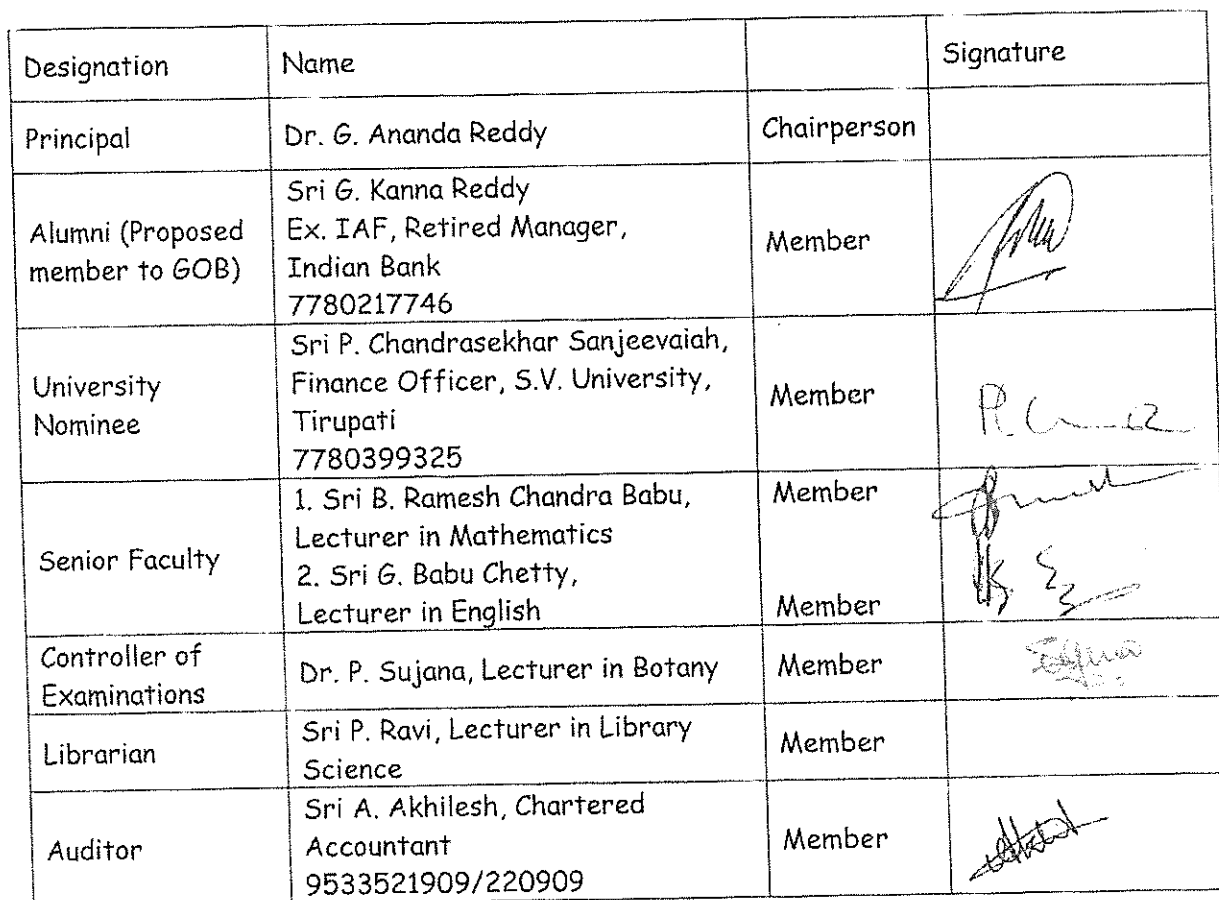 Designation Name Signature
Principal Dr. G. Ananda Reddy Chairperson
Alumni (Proposed member to GOB)
Sri G. Kanna Reddy
Ex. IAF, Retired Manager,
Indian Bank
7780217746
Member
University
Nominee
Sri P. Chandrasekhar Sanjeevaiah,
Finance Officer, S.V. University,
Tirupati
7780399325
Member
Senior Faculty
1. Sri B. Ramesh Chandra Babu,
Lecturer in Mathematics
Member
2. Sri G. Babu Chetty,
Lecturer in English
Member
Controller of
Examinations
Dr. P. Sujana, Lecturer in Botany
Member
Librarian
Sri P. Ravi, Lecturer in Library
Science
Member
Auditor
Sri A. Akhilesh, Chartered
Accountant
9533521909/220909
Member